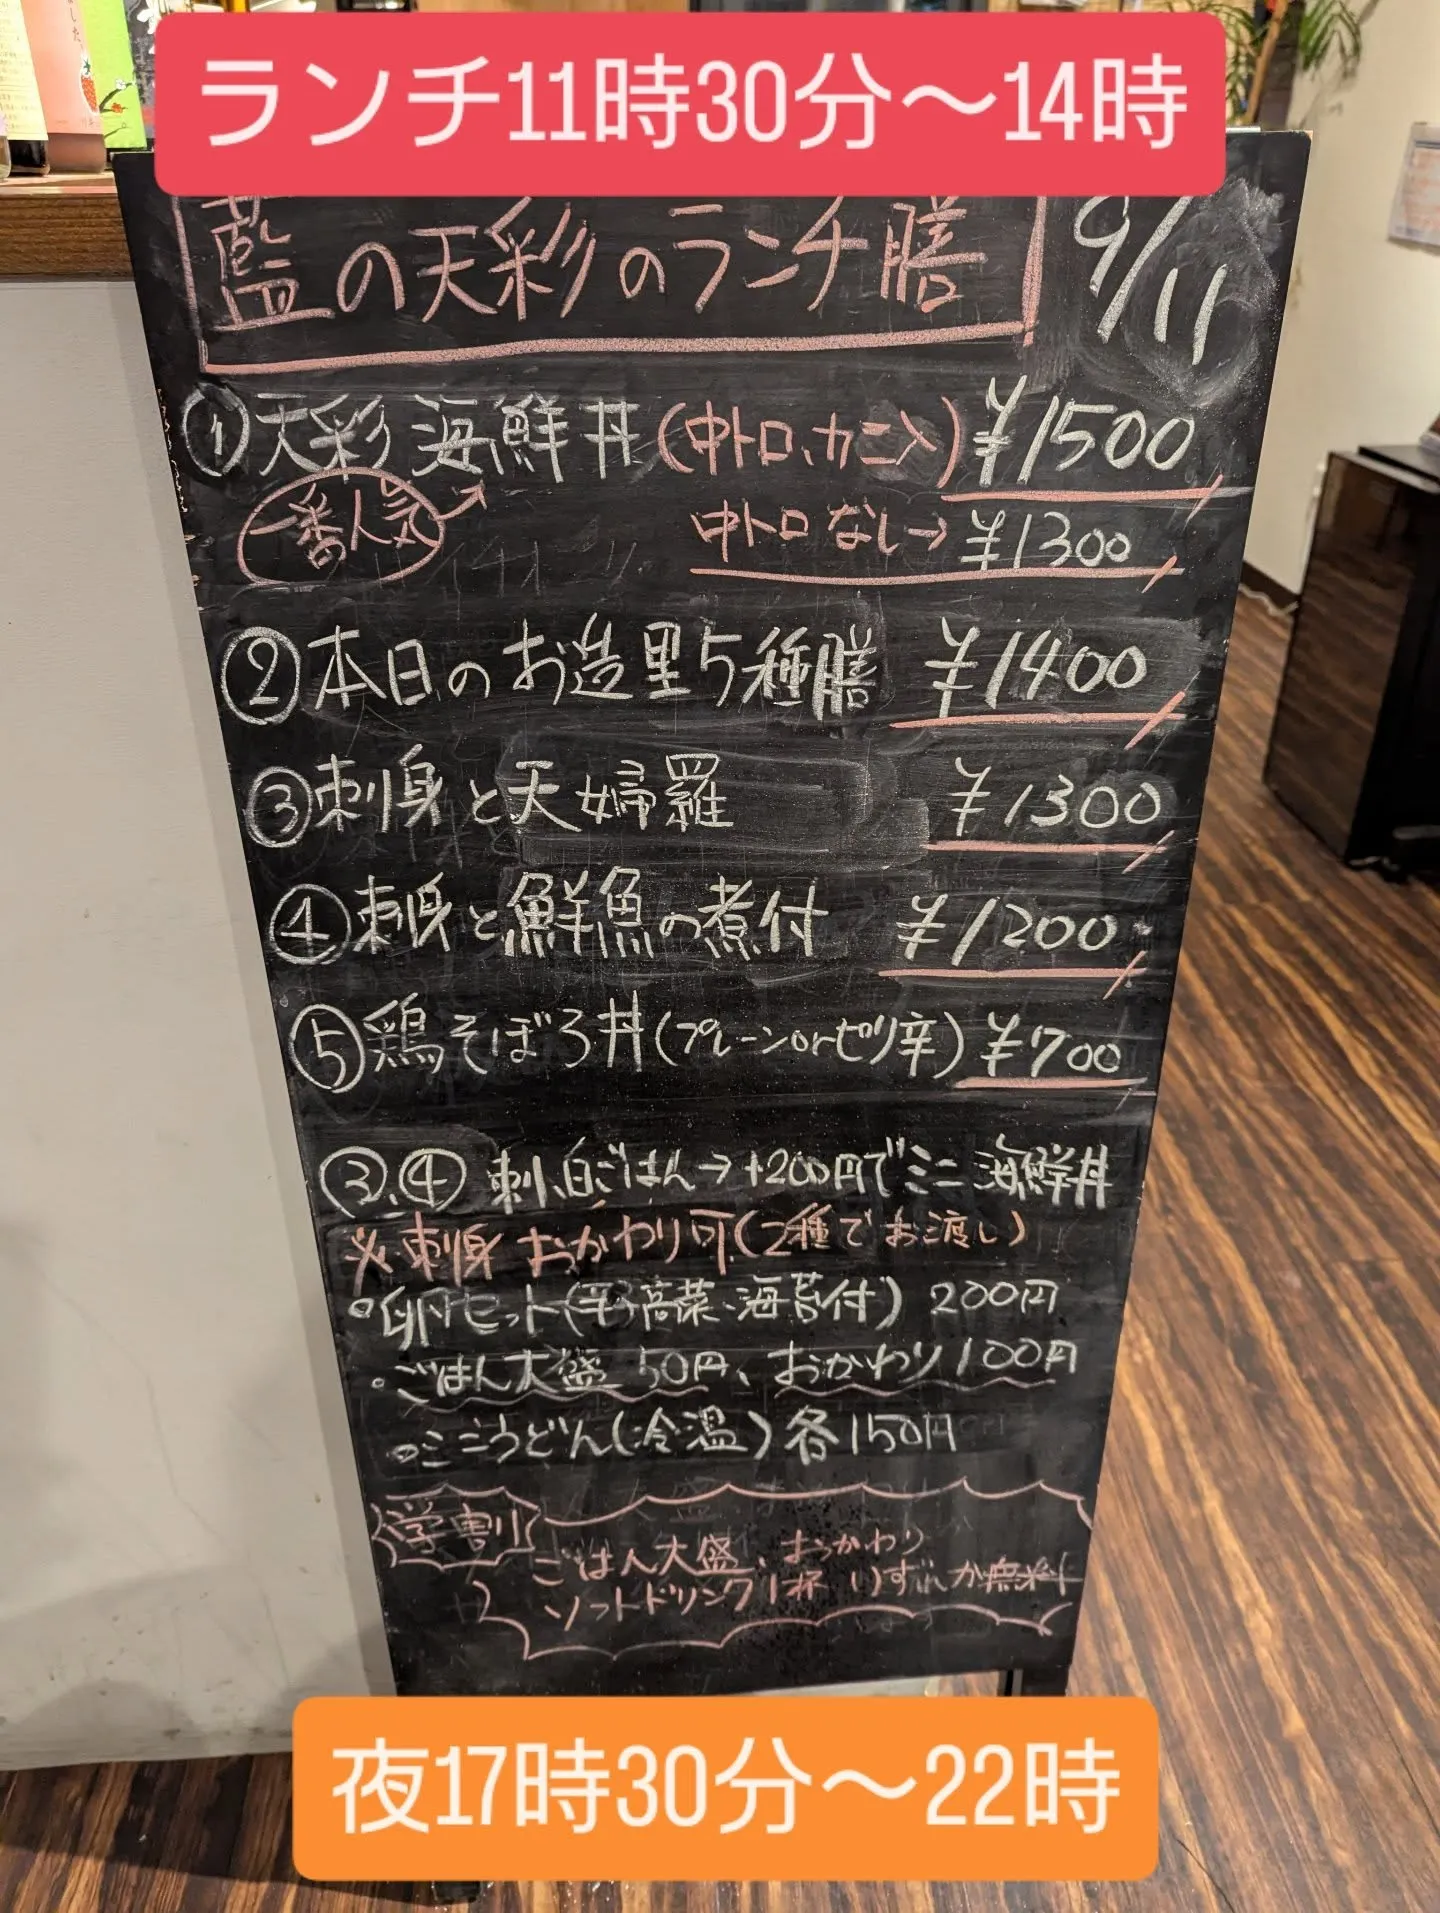 ランチ11時30分〜14時
藍の天彩のランチ膳 9/11
①天彩海鮮丼(中トロ、カニ入) ¥1500
一番人気 中トロなし→¥1300
②本日のお造里5種膳 ¥1400
③刺身と天婦羅 ¥1300
④刺身と鮮魚の煮付 ¥1200
⑤鶏そぼろ丼(プレーンorピリ辛) ¥700
③、④ 刺、白ごはん→+200円でミニ海鮮丼
※刺身おかわり可(2種でお渡し)
。卵セット(辛高菜、海苔付) 200円
。ごはん大盛 50円、おかわり100円
。ミニうどん(冷温)各150円
学割
ごはん大盛、おかわり
ソフトドリンク1杯 いずれか無料
夜17時30分〜22時